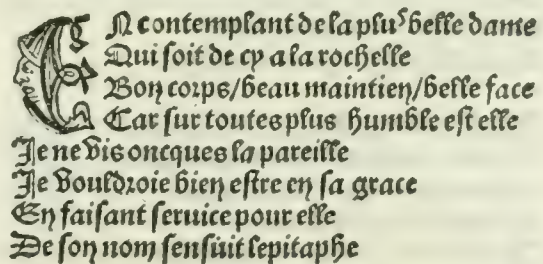 EN contemplant de la plus belle dame
Qui soit de cy a la rochelle
Bon corps/beau maintien/belle face
Car sur toutes plus humble est elle
Je ne vis oncques la pareille
Je vouldroie bien estre en sa grace
En faisant seruice pour elle
De son nom sensuit lepitaphe